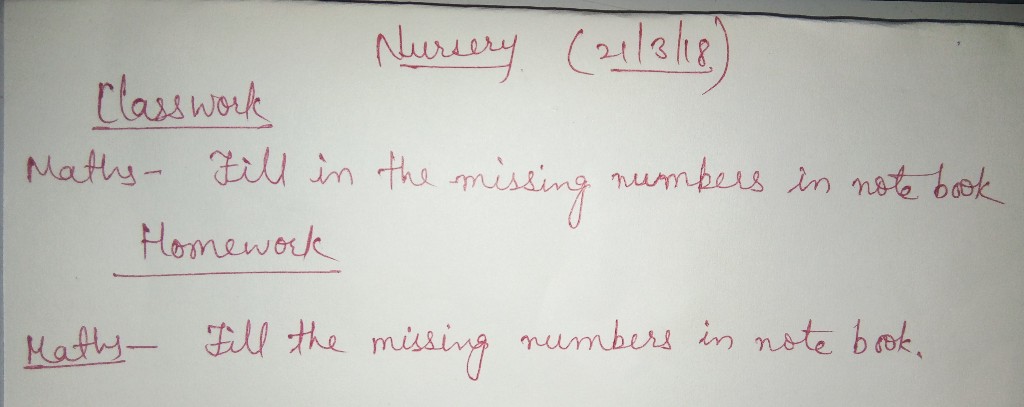 Nursery (21/3/18)
Classwork
Maths- Fill in the missing numbers in note book
Homework
Maths- Fill the missing numbers in note book.